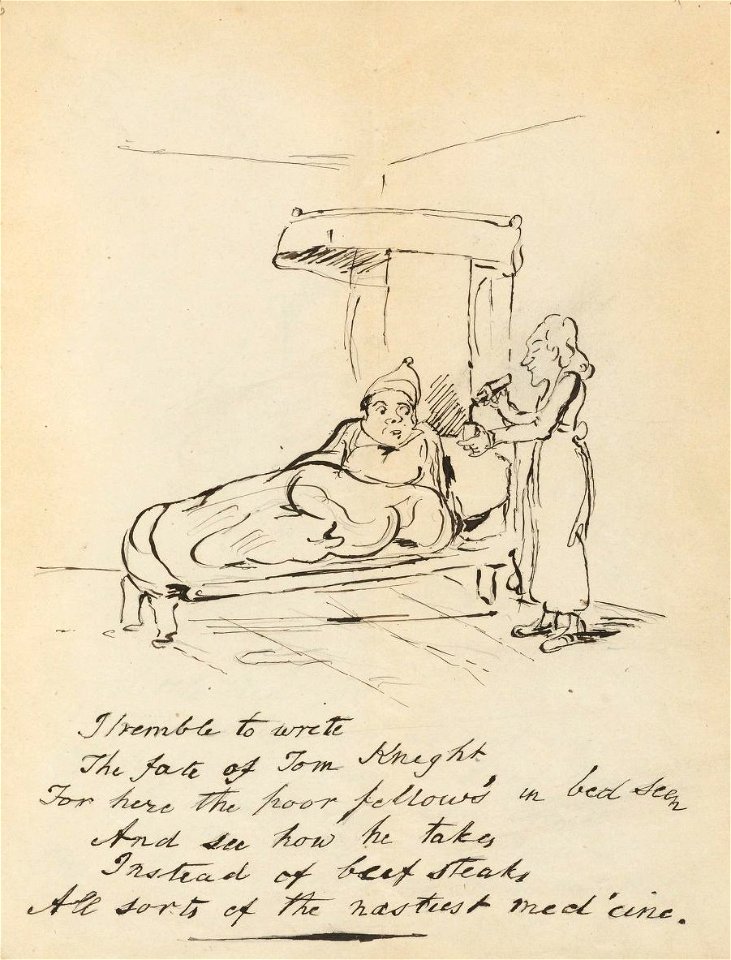 I tremble to write
The fate of Tom Kneght
For here the poor fellow's in bed seen
And see how he takes
Instead of beef steaks
All sorts of the nastiest med'cine.